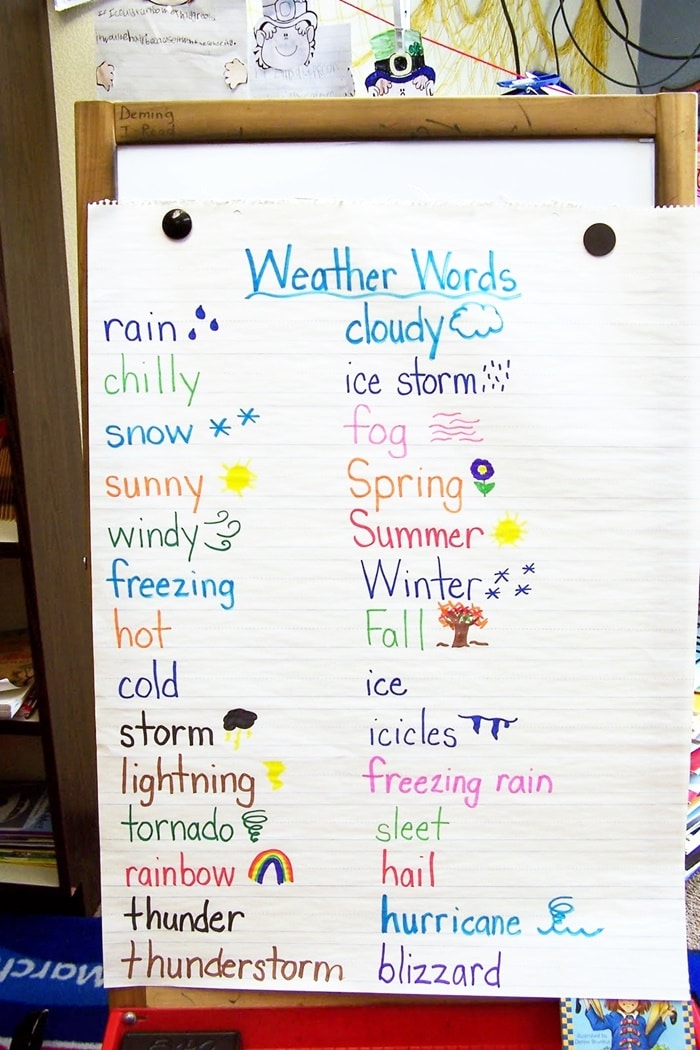 Deming
I Read
Weather Words
rain
chilly
snow
sunny
windy
freezing
hot
cold
storm
lightning
tornado
rainbow
thunder
thunderstorm
cloudy
ice storm
fog
Spring
Summer
Winter
Fall
ice
icicles
freezing rain
sleet
hail
hurricane
blizzard
March